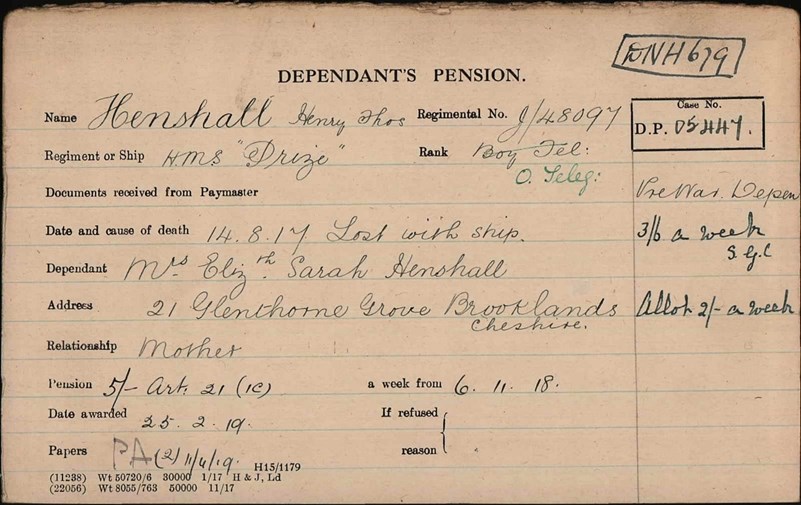 DNH679
DEPENDANT'S PENSION.
Name Henshall Henry Thos Regimental No. J/48097
Case No.
D.P. 05447.
Regiment or Ship H.M.S "Prize" Rank Boy Tel:
O. Teleg:
Documents received from Paymaster
Pre War. Depen
Date and cause of death 14.8.17 Lost with ship.
3/6 a week
S.G.C
Dependant Mrs Elizth. Sarah Henshall
Address 21 Glenthorne Grove Brooklands
Cheshire.
Allot 2/- a week
Relationship Mother
Pension 5/- Art. 21 (1C) a week from 6. 11. 18.
Date awarded 25. 2. 19. If refused
Papers PA (2) 11/4/19. reason
H15/1179
(11238) Wt 50720/6 30000 1/17 H & J, Ld
(22056) Wt 8055/763 50000 11/17